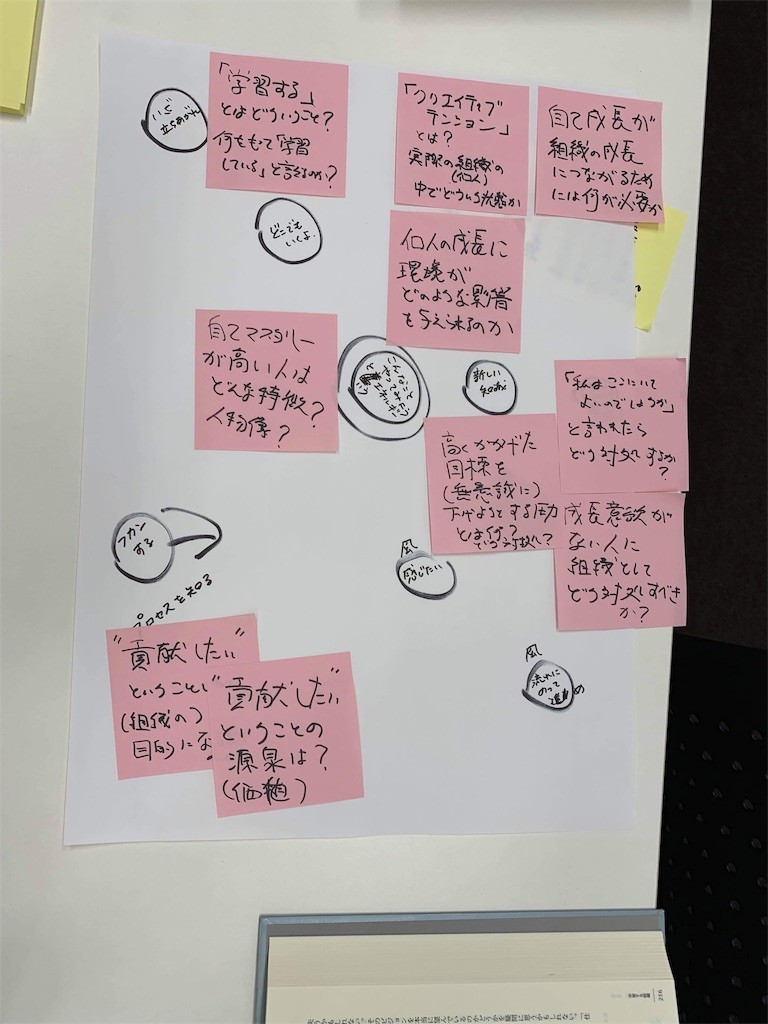 「学習する」
とはどういうこと?
何をもって「学習
している」と言えるのか?
「クリエイティブ
テンション」
とは?
実際の組織の
(個人)
中でどういう状態か
自己成長が
組織の成長
につながるため
には何が必要か
どこでも
いいよ.
個人の成長に
環境が
どのような影響
を与えられるのか
自己マスタリー
が高い人は
どんな特徴?
人物像?
新しい
「私はここにいて
よいのでしょうか」
と言われたら
どう対処するか
?
高くかかげた
目標を
(無意識に)
下げようとする圧力
とは何?
成長意欲が
ない人に
組織として
どう対処すべき
か?
フカン
する
プロセスを知る
風
感じたい
風
流れに
のって
"貢献したい"
ということ
(組織の)
目的にな
"貢献したい"
ということの
源泉は?
(価値)
216